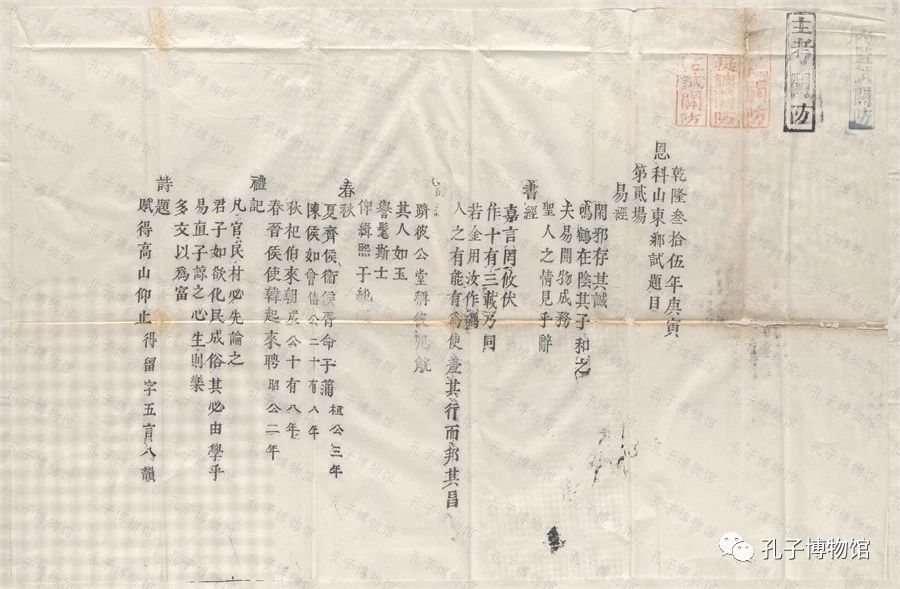 乾隆叁拾伍年庚寅
恩科山東鄉試題目
第貳場
易經
閑邪存其誠
鳴鶴在陰其子和之
夫易開物成務
聖人之情見乎辭
書經
嘉言罔攸伏
作十有三載乃同
若金用汝作礪
人之有能有爲使羞其行而邦其昌
躋彼公堂稱彼兕觥
其人如玉
譽髦斯士
俾緝熙于純
春秋
夏齊侯衛侯胥命于蒲 桓公三年
陳侯如會 僖公二十有八年
秋杞伯來朝 成公十有八年
春晉侯使韓起來聘 昭公二年
禮記
凡官民材必先論之
君子如欲化民成俗其必由學乎
易直子諒之心生則樂
多文以爲富
詩題
賦得高山仰止得留字五言八韻
主考關防
監試關防
關防
孔子博物馆